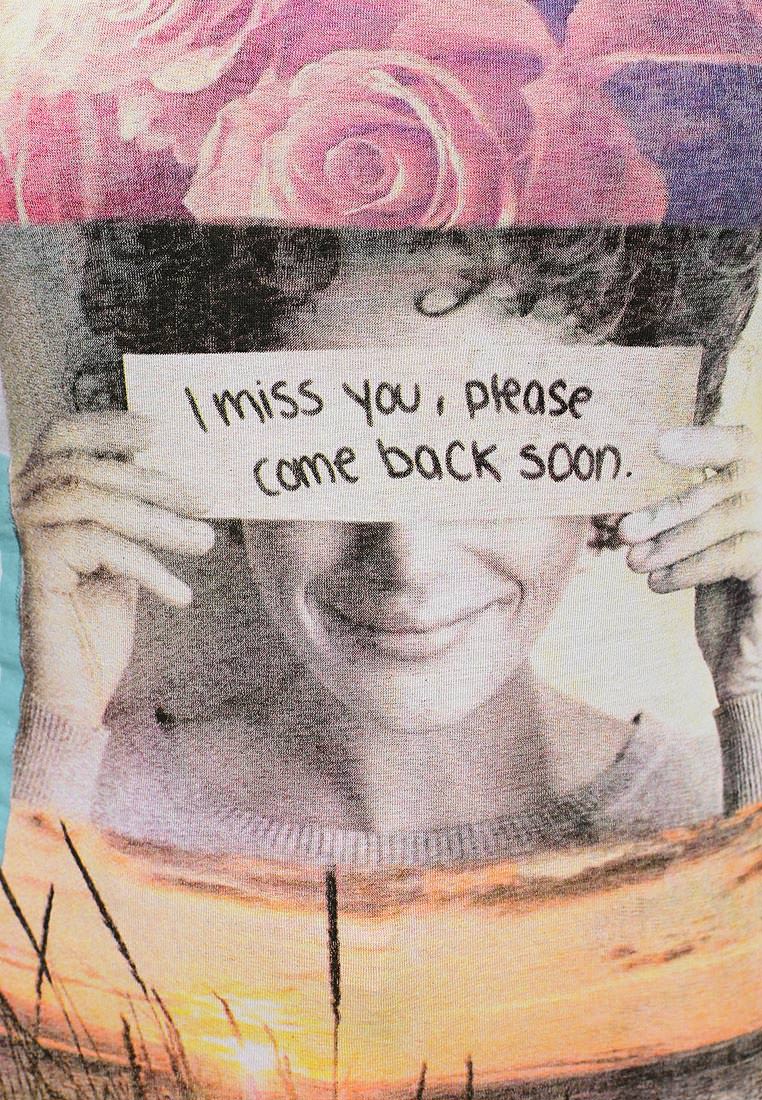 I miss you, please
come back soon.